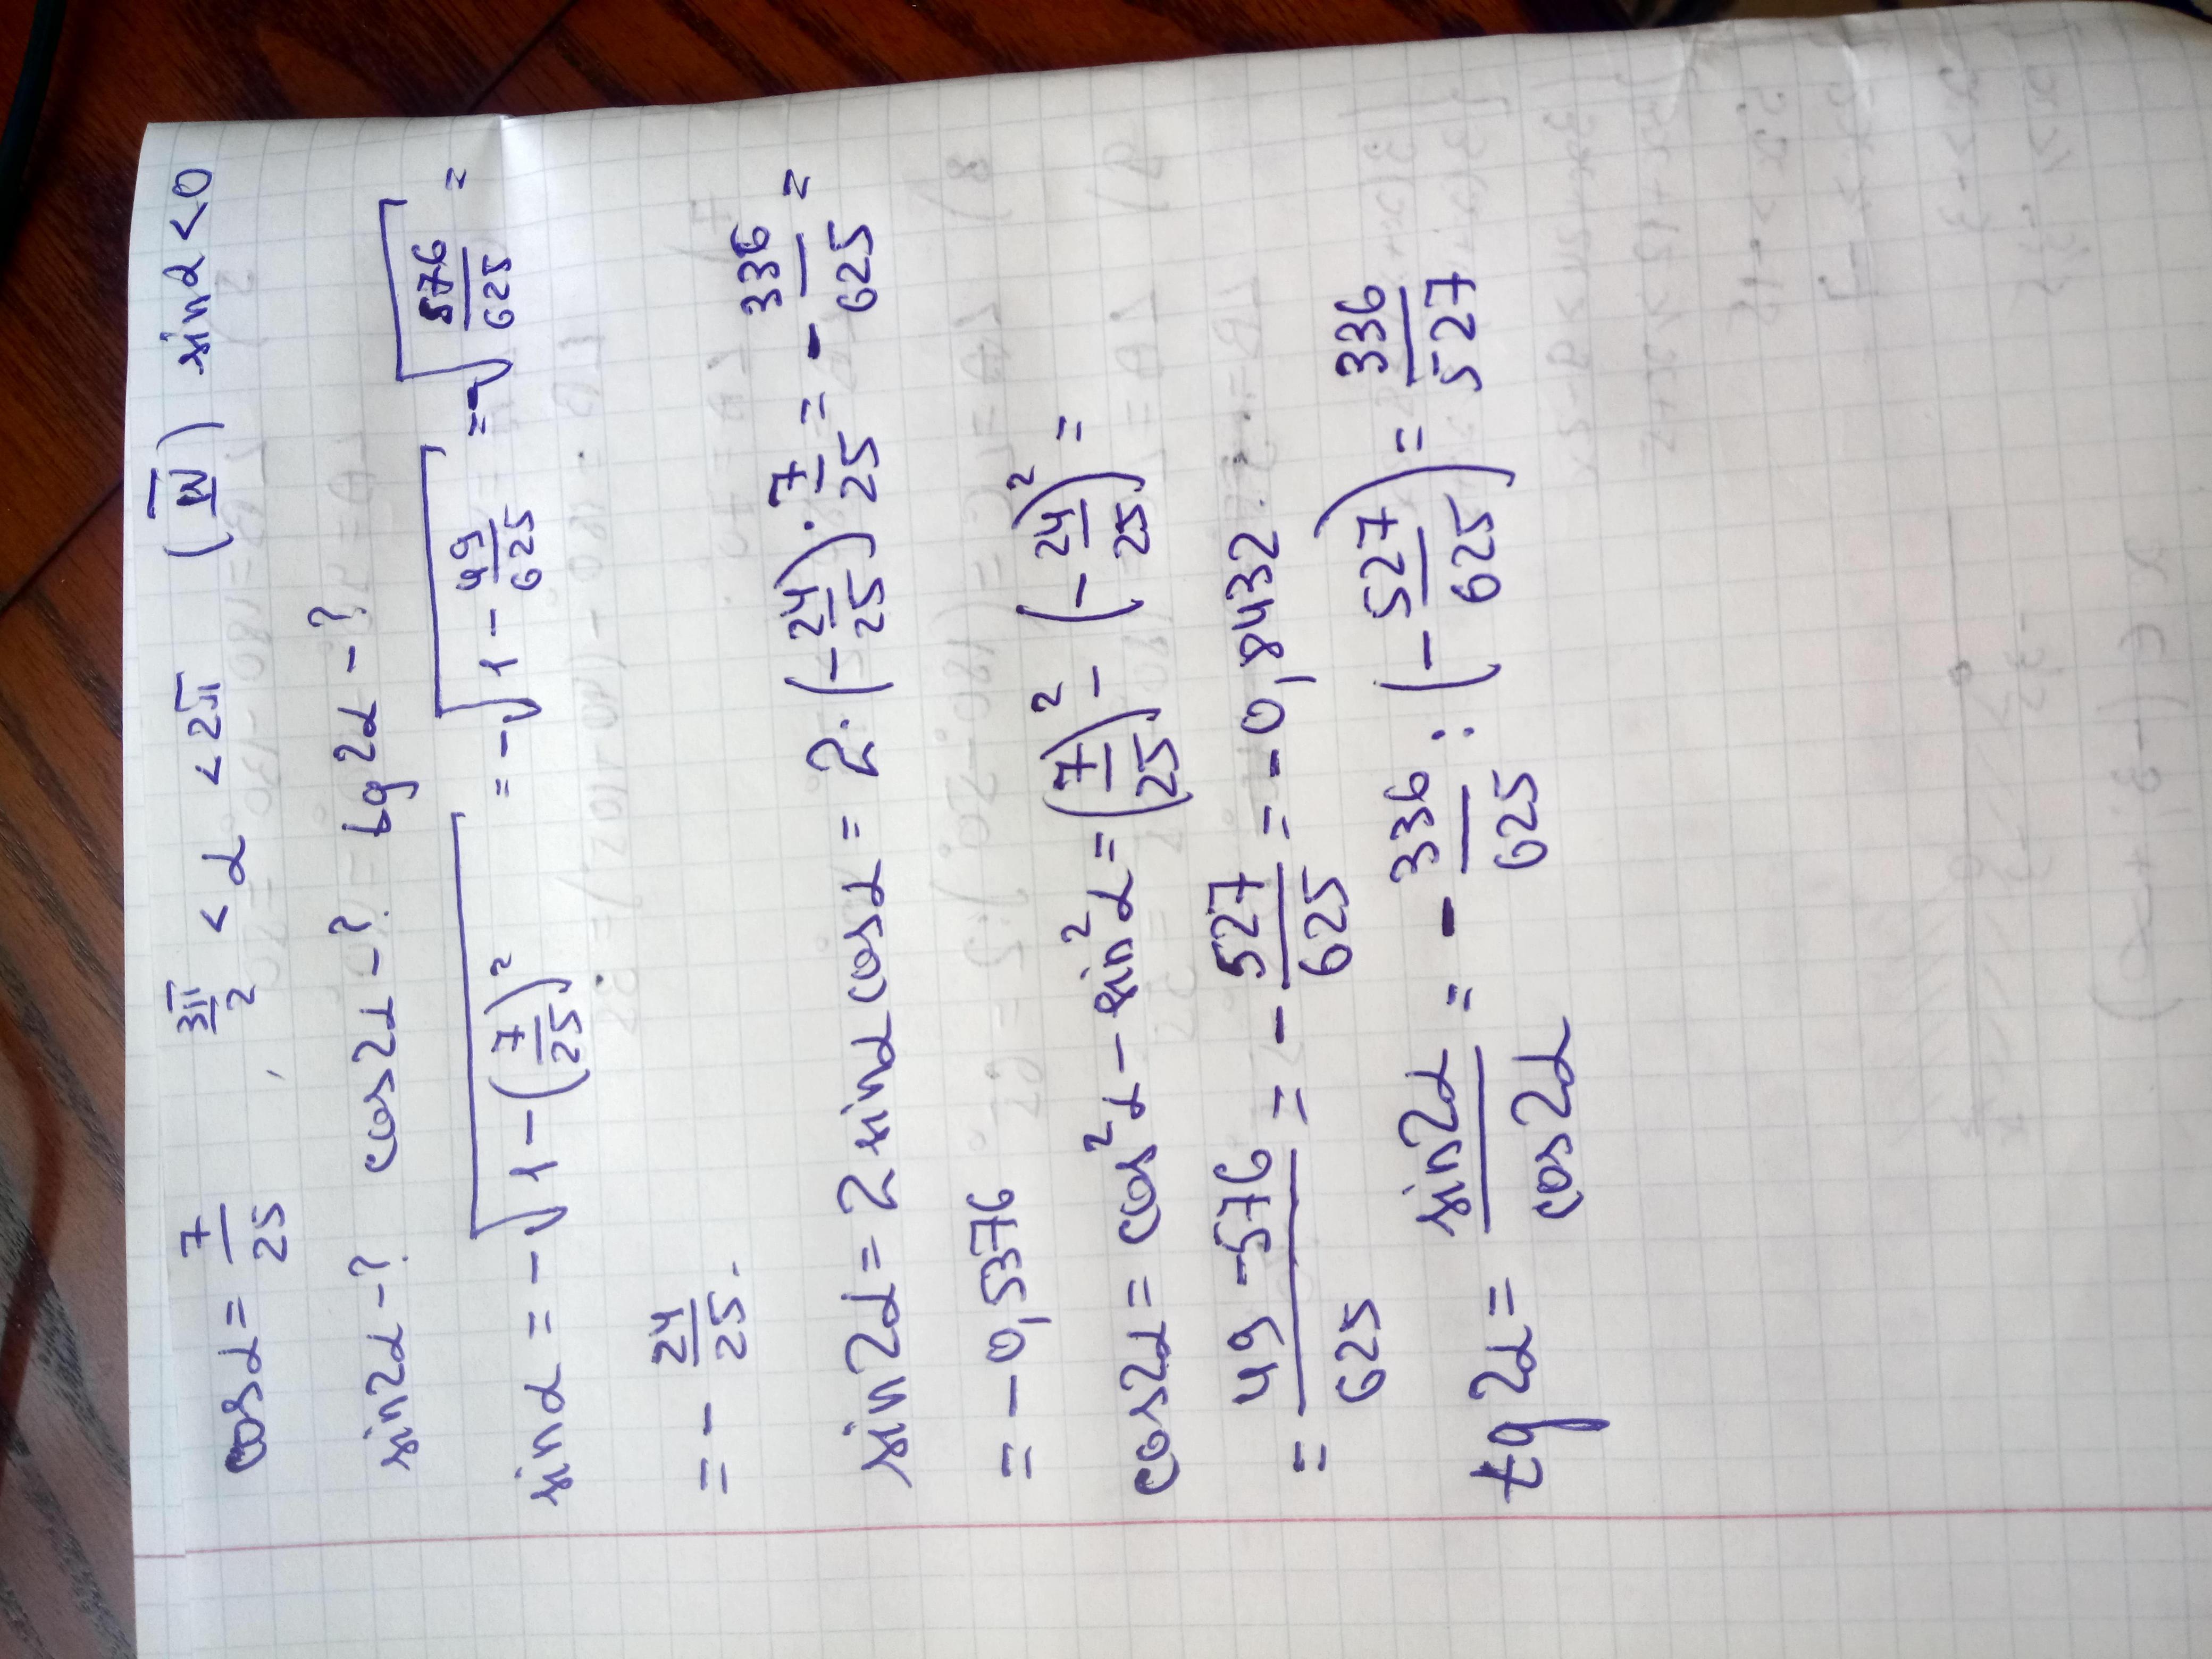 cos α = 7/25 , 3π/2 < α < 2π (IV) sin α < 0
sin 2α - ? cos 2α - ? tg 2α - ?
sin α = -√(1 - (7/25)²) = -√(1 - 49/625) = -√(576/625) =
= - 24/25.
sin 2α = 2 sin α cos α = 2 · (- 24/25) · 7/25 = - 336/625 =
= - 0,5376
cos 2α = cos² α - sin² α = (7/25)² - (- 24/25)² =
= (49 - 576)/625 = - 527/625 = - 0,8432
tg 2α = sin 2α/cos 2α = - 336/625 : (- 527/625) = 336/527